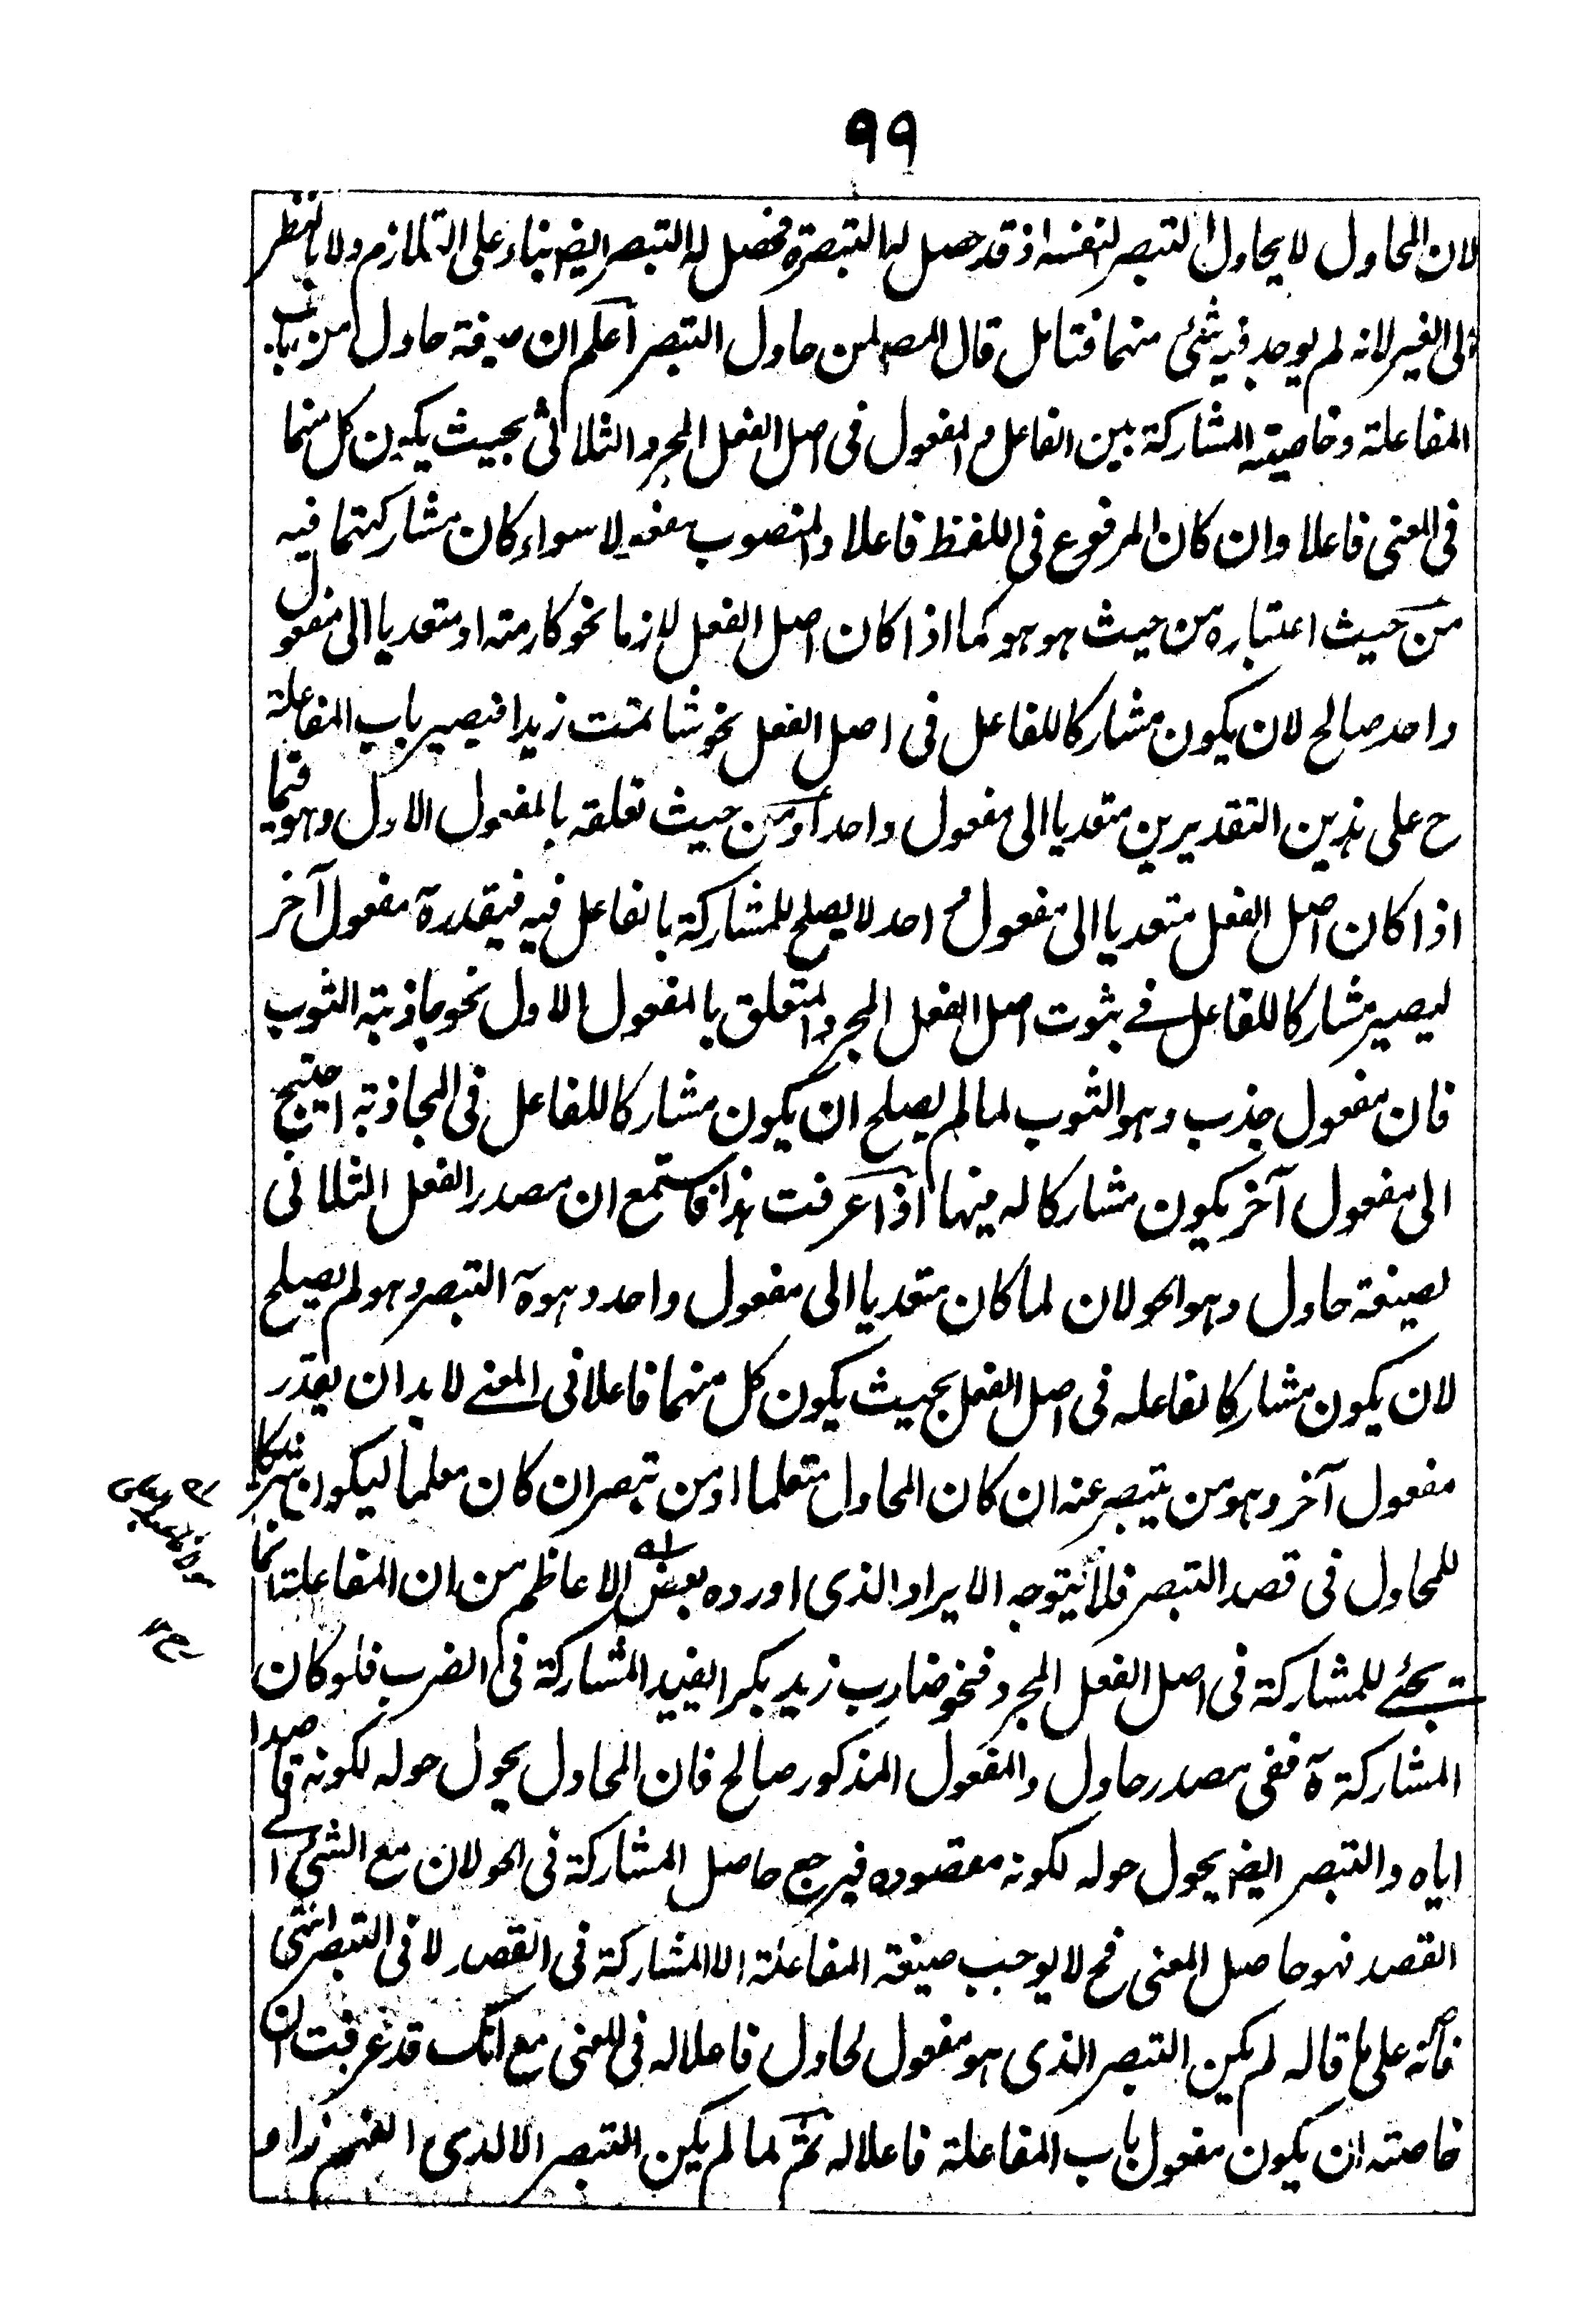 ٩٩
لان المحاول لا يحاول التبصر لنفسه اذ قد حصل له التبصرة فحصل له التبصر ايضا بناء على التلازم ولا بالنظر
الى الغير لانه لم يوجد فيه شئ منهما فتامل قال المصـ لمن حاول التبصر اعلم ان صيغة حاول من باب
المفاعلة وخاصيته المشاركة بين الفاعل والمفعول فى اصل الفعل المجرد الثلاثى بحيث يكون كل منهما
فى المعنى فاعلا وان كان المرفوع فى اللفظ فاعلا والمنصوب مفعولا سواء كان مشاركتهما فيه
من حيث اعتباره من حيث هو هو كما اذا كان اصل الفعل لازما نحو كارمته او متعديا الى مفعول
واحد صالح لان يكون مشاركا للفاعل فى اصل الفعل نحو شاتمت زيدا فيصير باب المفاعلة
ح على هذين التقديرين متعديا الى مفعول واحد او من حيث تعلقه بالمفعول الاول وهو فيما
اذا كان اصل الفعل متعديا الى مفعول واحد لا يصلح للمشاركة بالفاعل فيه فيقدر ة مفعول آخر
ليصير مشاركا للفاعل فے ثبوت اصل الفعل المجرد المتعلق بالمفعول الاول نحو جاذبته الثوب
فان مفعول جذب وهو الثوب لما لم يصلح ان يكون مشاركا للفاعل فى المجاذبة احتيج
الى مفعول آخر يكون مشاركا له فيها اذا عرفت هذا فاستمع ان مصدر الفعل الثلاثى
لصيغة حاول وهو الحولان لما كان متعديا الى مفعول واحد وهو ة التبصر وهو لم يصلح
لان يكون مشاركا لفاعله فى اصل الفعل بحيث يكون كل منهما فاعلا فى المعنے لا بد ان يقدر
مفعول آخر وهو من يتبصر عنه ان كان المحاول متعلما او من تبصر ان كان معلما ليكون مشاركا
للمحاول فى قصد التبصر فلا يتوجه الايراد الذى اورده بعض الاعاظم من ان المفاعلة انما
تجئے للمشاركة فى اصل الفعل المجرد فنحو ضارب زيد بكرا يفيد المشاركة فى الضرب فلو كان
المشاركة ة ففى مصدر حاول والمفعول المذكور صالح فان المحاول يحول حوله لكونه قاصدا
اياه والتبصر ايضـ يحول حوله لكونه مقصوده فيرجع حاصل المشاركة فى الحولان مع الشئ الے
القصد فهو حاصل المعنى فح لا يوجب صيغة المفاعلة الا المشاركة فى القصد لا فى التبصر انتهى
فانه على ما قاله لم يكن التبصر الذى هو مفعول لحاول فاعلا له فى المعنى مع انك قد عرفت ان
خاصته ان يكون مفعول باب المفاعلة فاعلا له ثم لما لم يكن التبصر الا لذى الفهم زاد